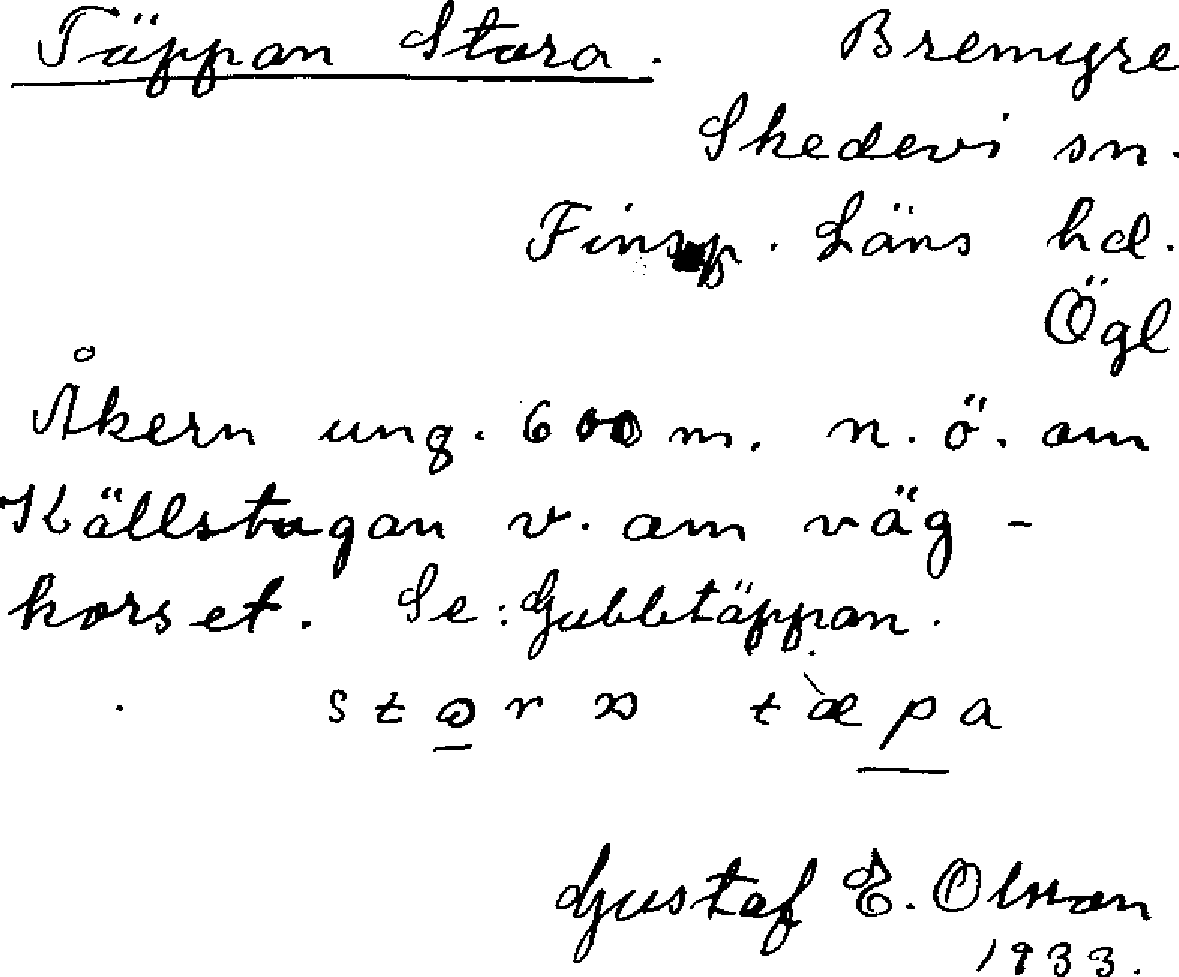 Täppan Stora. Bremyre
Skedevi sn.
Finsp. Läns hd.
Ögl
Åkern ung. 600 m. n. ö. om
Källstugan v. om väg-
korset. Se: Gubbtäppan.
Gustaf E. Olsson
1933.